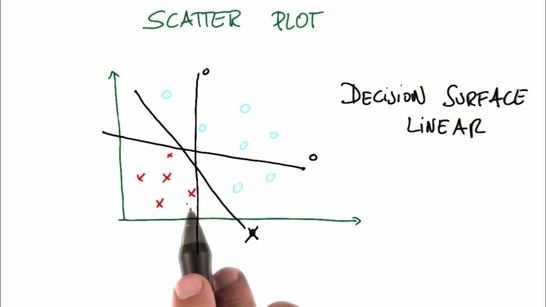 SCATTER PLOT
DECISION SURFACE
LINEAR